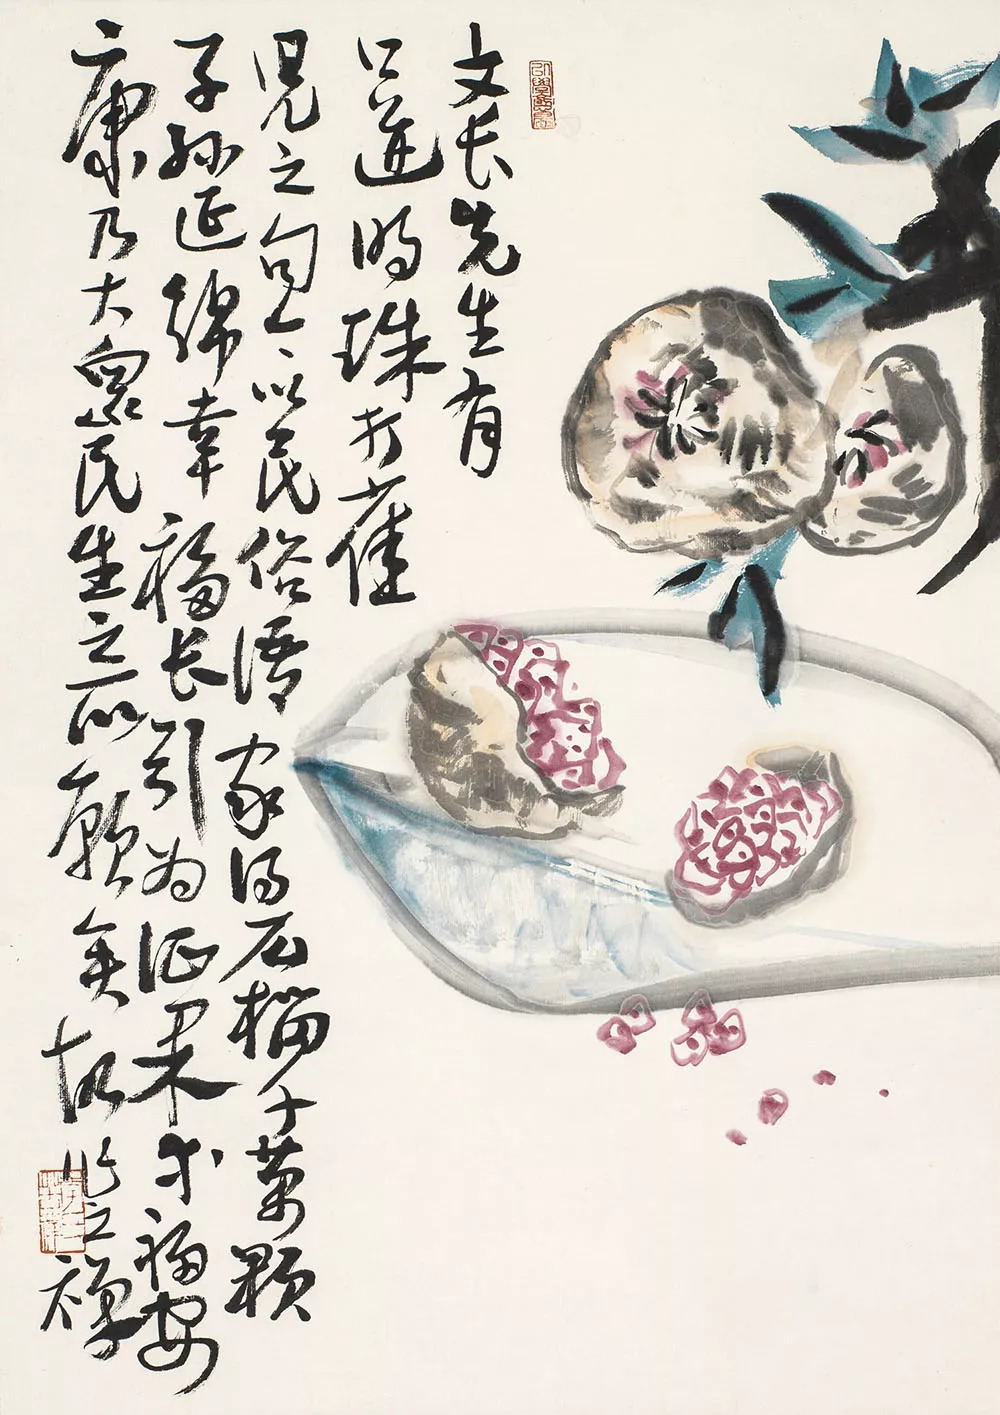 文长先生有
口迸明珠打雀
児之句以民俗语家得石榴千万颗
子孙延绵幸福长引为证果求福安
康乃大众民生之所愿矣故作之禅